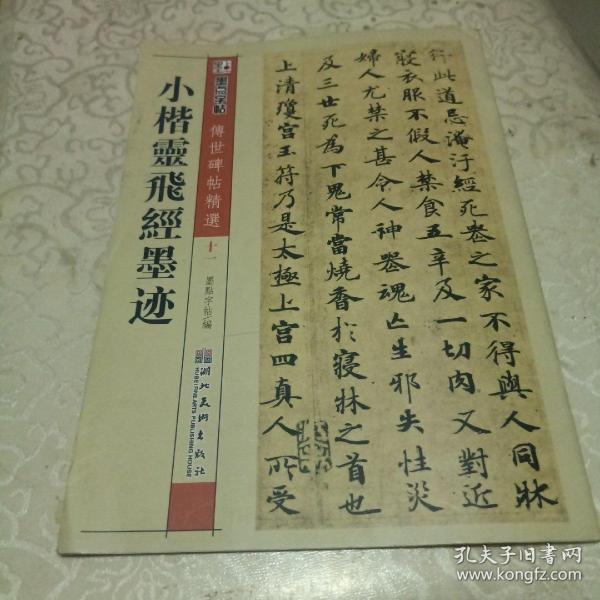 小楷靈飛經墨迹
墨点字帖
傳世碑帖精選
十一
墨點字帖/編
湖北美术出版社
HUBEI FINE ARTS PUBLISHING HOUSE
行此道忌淹汙經死丧之家不得與人同牀
寢衣服不假人禁食五辛及一切肉又對近
婦人尤禁之甚令人神喪魂亡生邪失性災
及三世死為下鬼常當燒香於寢牀之首也
上清瓊宫玉符乃是太極上宫四真人所受
孔夫子旧书网
www.kongfz.com